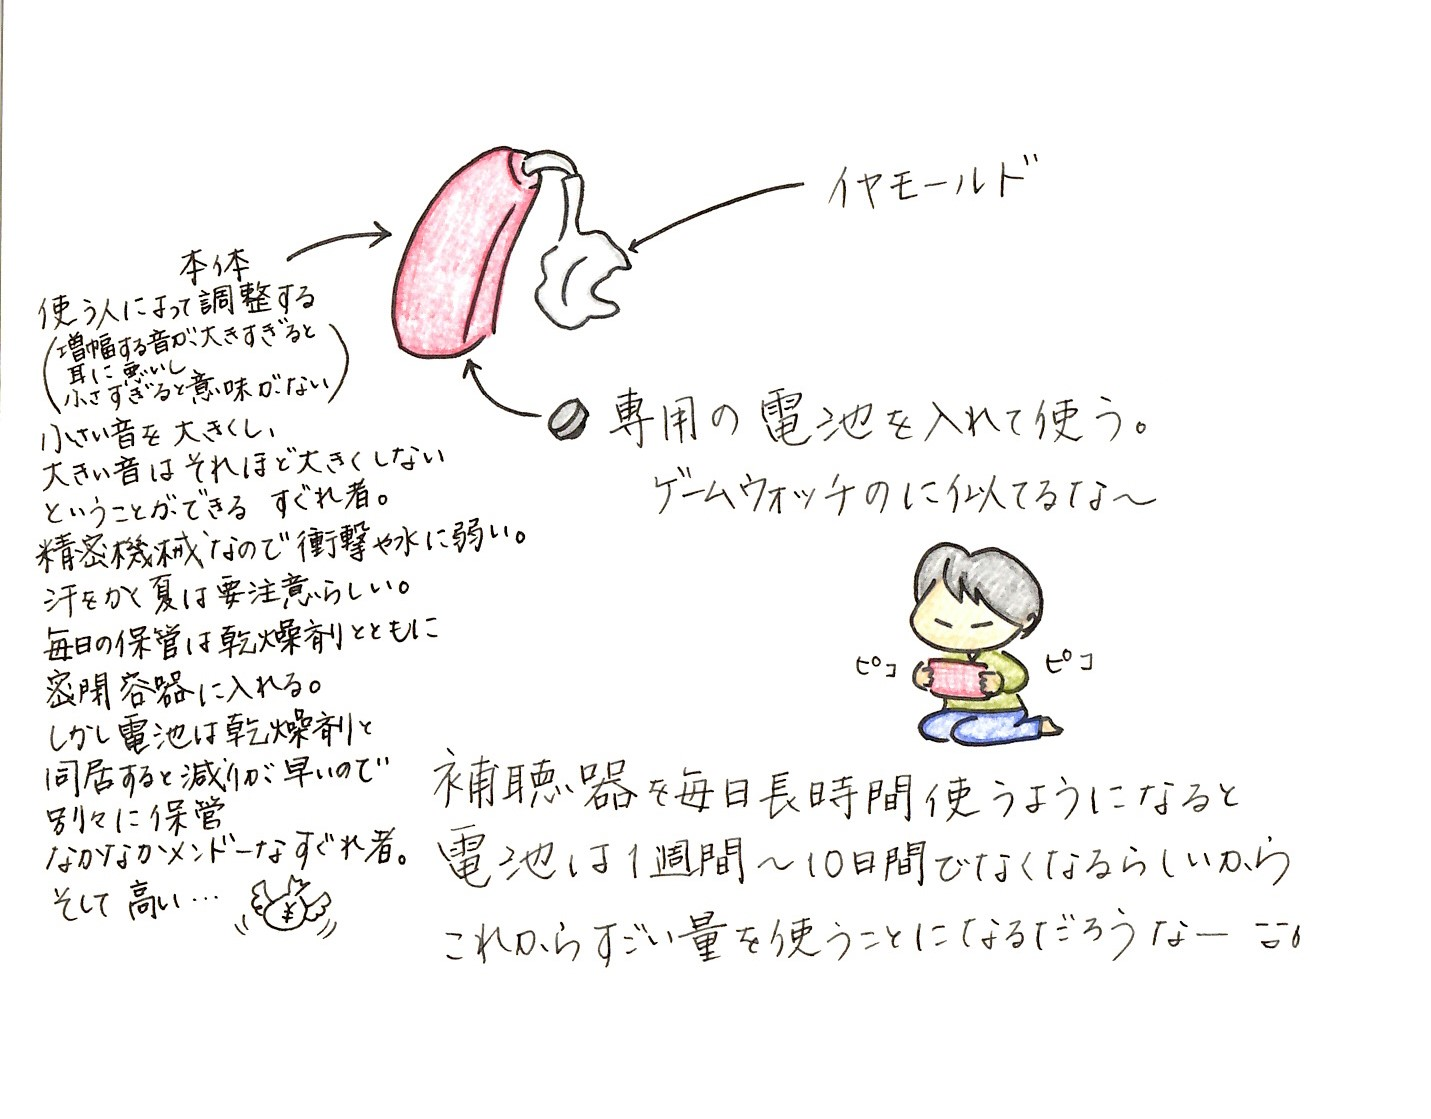 イヤモールド
本体
使う人によって調整する
(増幅する音が大きすぎると
耳に悪いし、
小さすぎると意味がない)
小さい音を大きくし、
大きい音はそれほど大きくしない
ということができる すぐれ者。
精密機械なので衝撃や水に弱い。
汗をかく夏は要注意らしい。
毎日の保管は乾燥剤とともに
密閉容器に入れる。
しかし電池は乾燥剤と
同居すると減りが早いので
別々に保管
なかなかメンドーなすぐれ者。
そして高い…
¥
専用の電池を入れて使う。
ゲームウォッチのに似てるな〜
ピコ ピコ
補聴器を毎日長時間使うようになると
電池は1週間〜10日間でなくなるらしいから
これからすごい量を使うことになるだろうなー